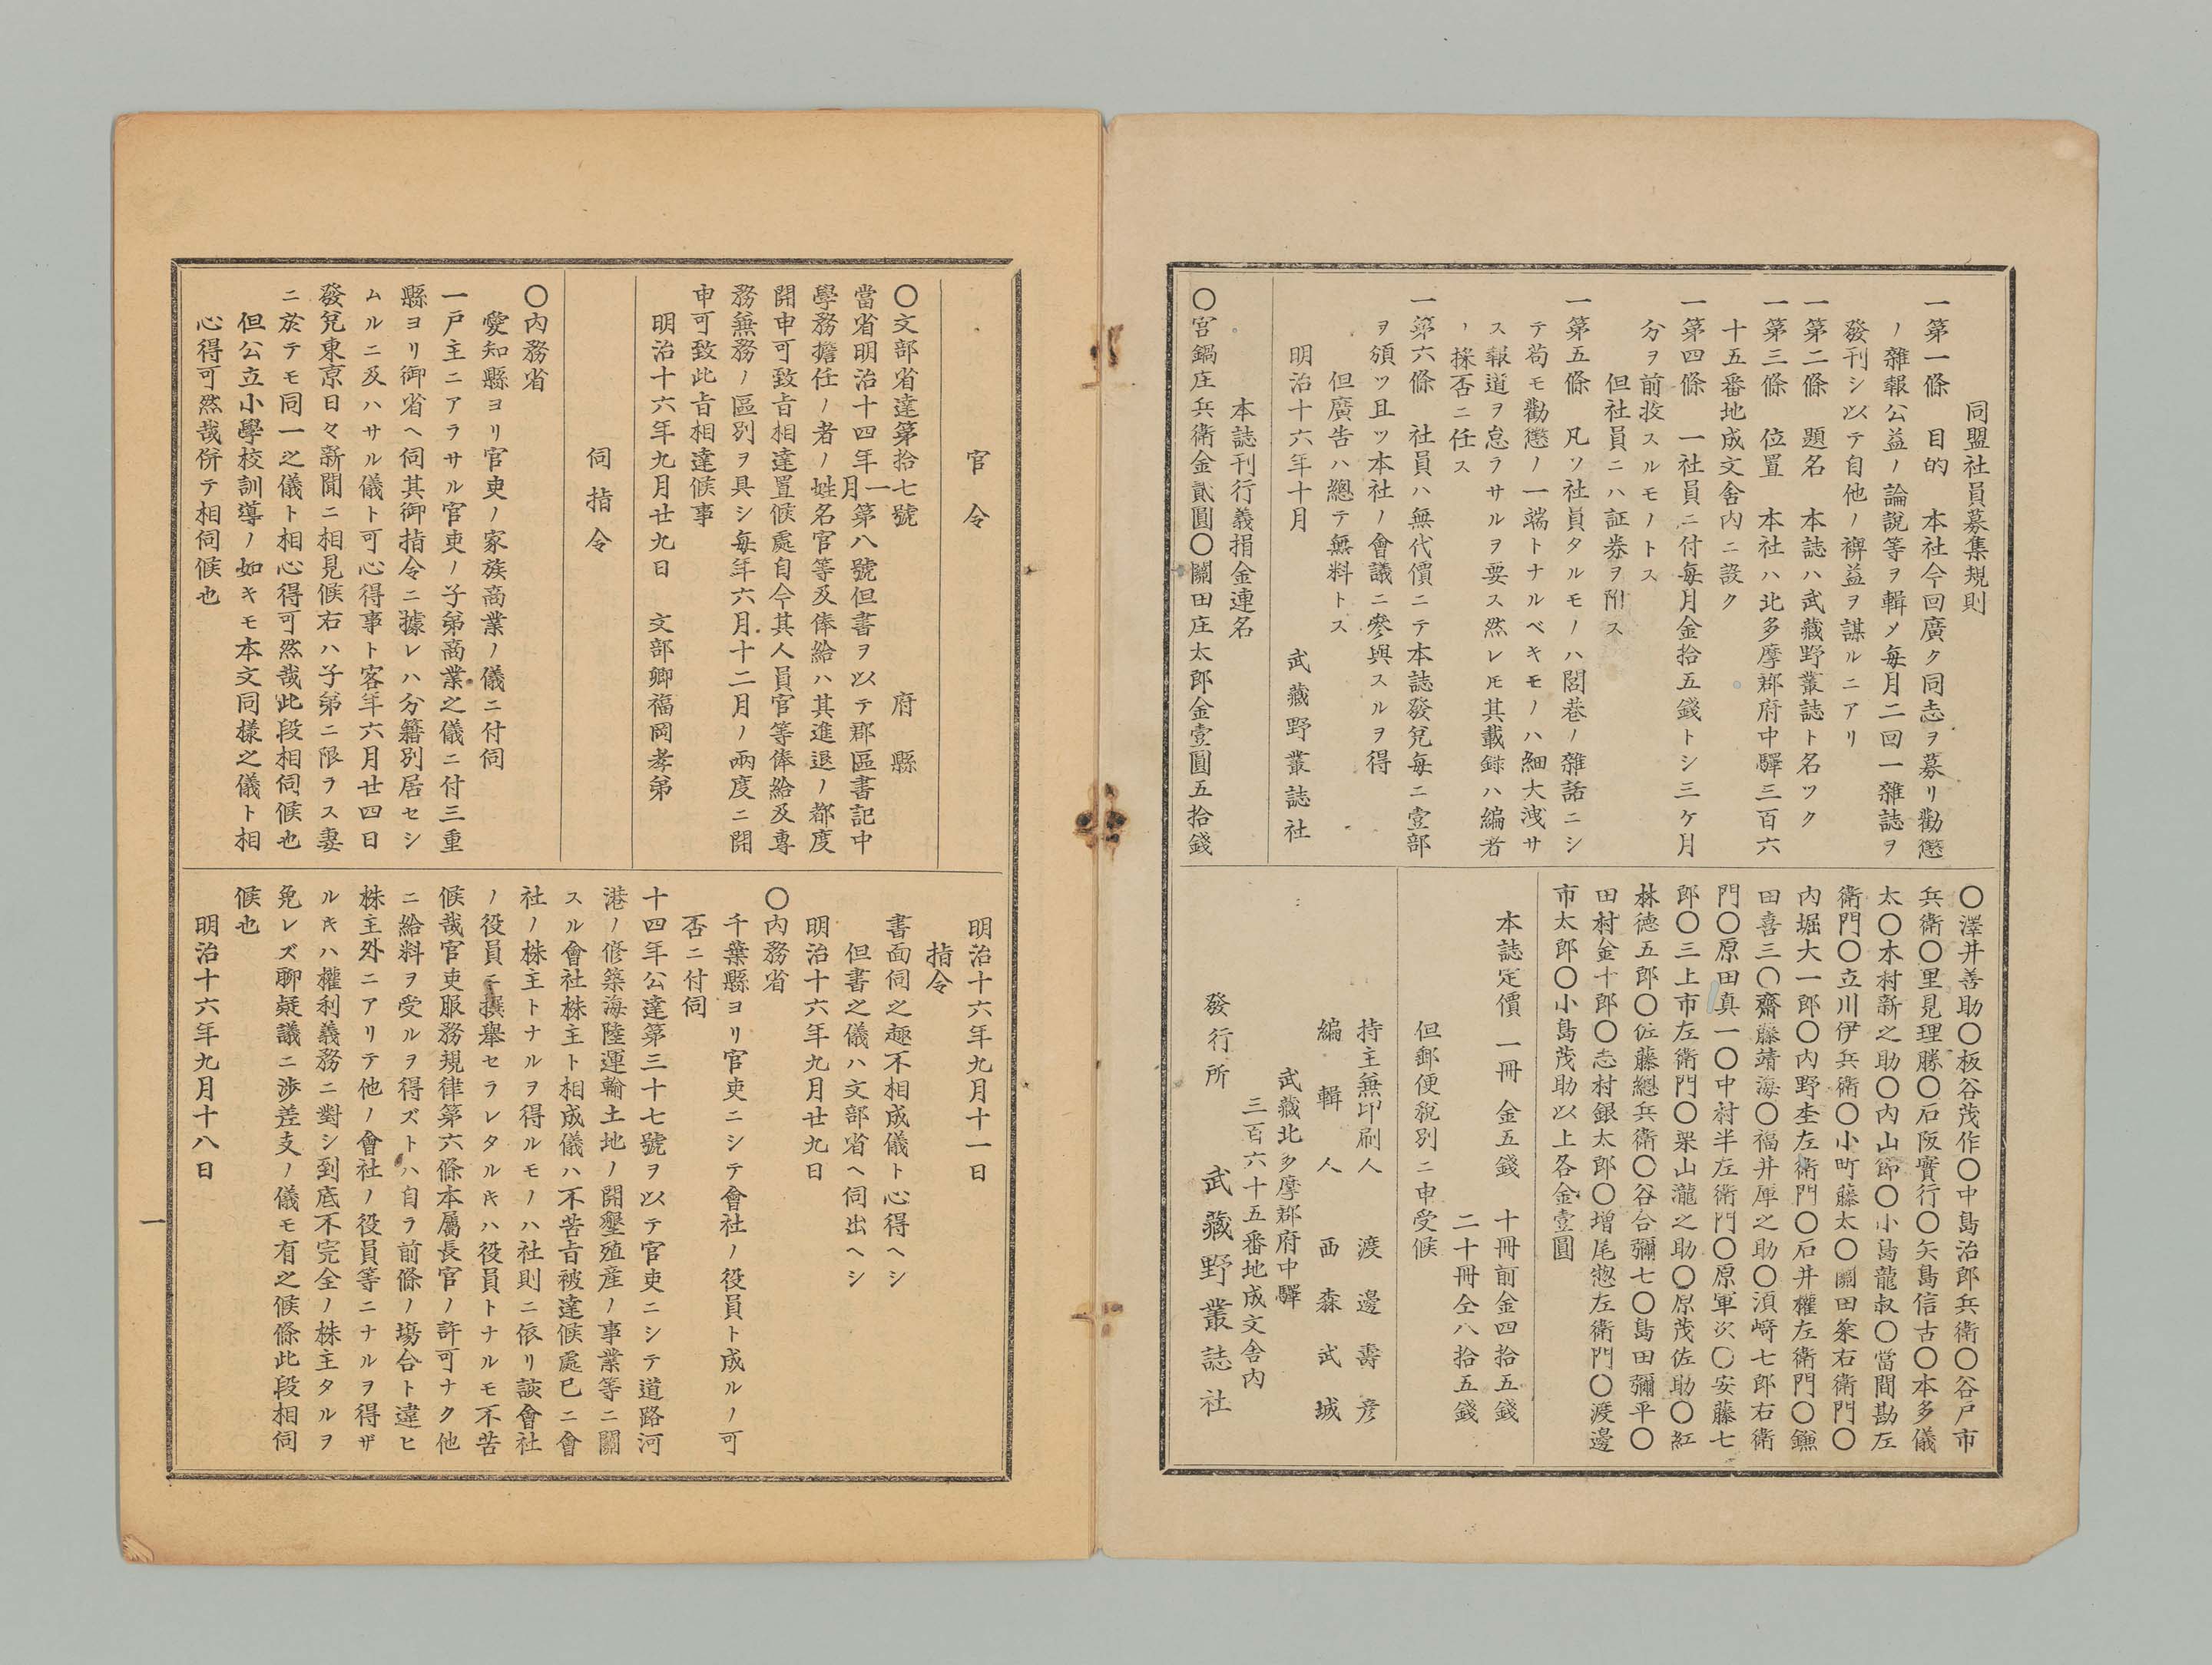 同盟社員募集規則
一第一條　目的　本社今回廣ク同志ヲ募リ勸懲
ノ雜報公益ノ論說等ヲ輯メ每月二回一雜誌ヲ
發刊シ以テ自他ノ裨益ヲ謀ルニアリ
一第二條　題名　本誌ハ武藏野叢誌ト名ツク
一第三條　位置　本社ハ北多摩郡府中驛三百六
十五番地成文舍内ニ設ク
一第四條　一社員ニ付每月金拾五錢トシ三ケ月
分ヲ前收スルモノトス
但社員ニハ証券ヲ附ス
一第五條　凡ソ社員タルモノハ閭巷ノ雜話ニシ
テ苟モ勸懲ノ一端トナルベキモノハ細大洩サ
ス報道ヲ怠ラサルヲ要ス然レ𪜈其載録ハ編者
ノ採否ニ任ス
一第六條　社員ハ無代價ニテ本誌發兌每ニ壹部
ヲ頒ツ且ツ本社ノ會議ニ參與スルヲ得
但廣告ハ總テ無料トス
明治十六年十月　武藏野叢誌社
本誌刊行義捐金連名
〇宮鍋庄兵衛金貳圓〇關田庄太郎金壹圓五拾錢
〇澤井善助〇板谷茂作〇中島治郎兵衛〇谷戸市
兵衛〇里見理勝〇石阪實行〇矢島信古〇本多儀
太〇木村新之助〇内山節〇小島龍叔〇當間勘左
衛門〇立川伊兵衛〇小町藤太〇關田粂右衛門〇
内堀大一郎〇内野杢左衛門〇石井權左衛門〇鎌
田喜三〇齋藤靖海〇福井厚之助〇湏﨑七郎右衛
門〇原田真一〇中村半左衛門〇原軍次〇安藤七
郎〇三上市左衛門〇粜山瀧之助〇原茂佐助〇紅
林德五郎〇佐藤總兵衛〇谷合彌七〇島田彌平〇
田村金十郎〇志村銀太郎〇增尾惣左衛門〇渡邊
市太郎〇小島茂助以上各金壹圓
本誌定價　一冊　金五錢　十冊前金四拾五錢
二十冊仝八拾五錢
但郵便税別ニ申受候
持主兼印刷人　渡邊壽彦
編輯人　西森武城
武藏北多摩郡府中驛
三百六十五番地成文舍内
發行所　武藏野叢誌社
官令
〇文部省達第拾七號　府縣
當省明治十四年一月第八號但書ヲ以テ郡區書記中
學務擔任ノ者ノ姓名官等及俸給ハ其進退ノ都度
開申可致旨相達置候處自今其人員官等俸給及專
務兼務ノ區別ヲ具シ每年六月十二月ノ兩度ニ開
申可致此旨相達候事
明治十六年九月廿九日　文部卿福岡孝弟
伺指令
〇内務省
愛知縣ヨリ官吏ノ家族商業ノ儀ニ付伺
一戸主ニアラサル官吏ノ子弟商業之儀ニ付三重
縣ヨリ御省ヘ伺其御指令ニ據レハ分籍別居セシ
ムルニ及ハサル儀ト可心得事ト客年六月廿四日
發兌東京日々新聞ニ相見候右ハ子弟ニ限ラス妻
ニ於テモ同一之儀ト相心得可然哉此段相伺候也
但公立小學校訓導ノ如キモ本文同樣之儀ト相
心得可然哉併テ相伺候也
明治十六年九月十一日
指令
書面伺之趣不相成儀ト心得ヘシ
但書之儀ハ文部省ヘ伺出ヘシ
明治十六年九月廿九日
〇内務省
千葉縣ヨリ官吏ニシテ會社ノ役員ト成ルノ可
否ニ付伺
十四年公達第三十七號ヲ以テ官吏ニシテ道路河
港ノ修築海陸運輸土地ノ開墾殖産ノ事業等ニ關
スル會社株主ト相成儀ハ不苦旨被達候處已ニ會
社ノ株主トナルヲ得ルモノハ社則ニ依リ該會社
ノ役員ニ撰舉セラレタル𪜈ハ役員トナルモ不苦
候哉官吏服務規律第六條本屬長官ノ許可ナク他
ニ給料ヲ受ルヲ得ズトハ自ラ前條ノ塲合ト違ヒ
株主外ニアリテ他ノ會社ノ役員等ニナルヲ得ザ
ルキハ權利義務ニ對シ到底不完全ノ株主タルヲ
免レズ聊疑議ニ渉差支ノ儀モ有之候條此段相伺
候也
明治十六年九月十八日
一